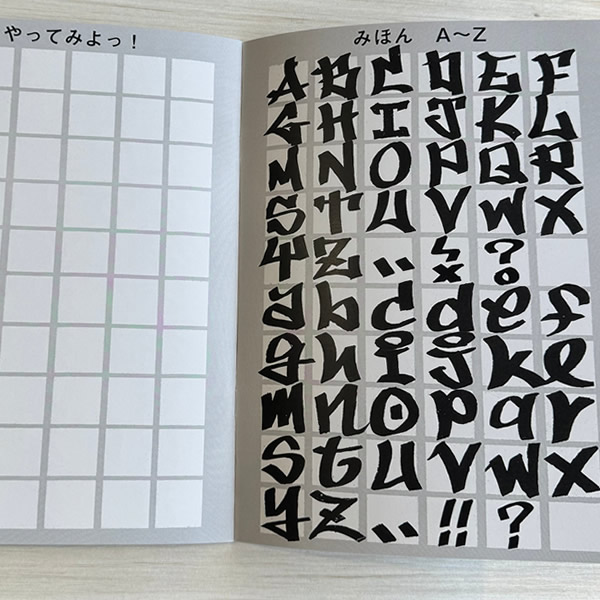 やってみよっ！
みほん A～Z
A B C D E F
G H I J K L
M N O P Q R
S T U V W X
Y Z ., ?
a b c d e f
g h i j k l
m n o p q r
s t u v w x
y z ., !! ?